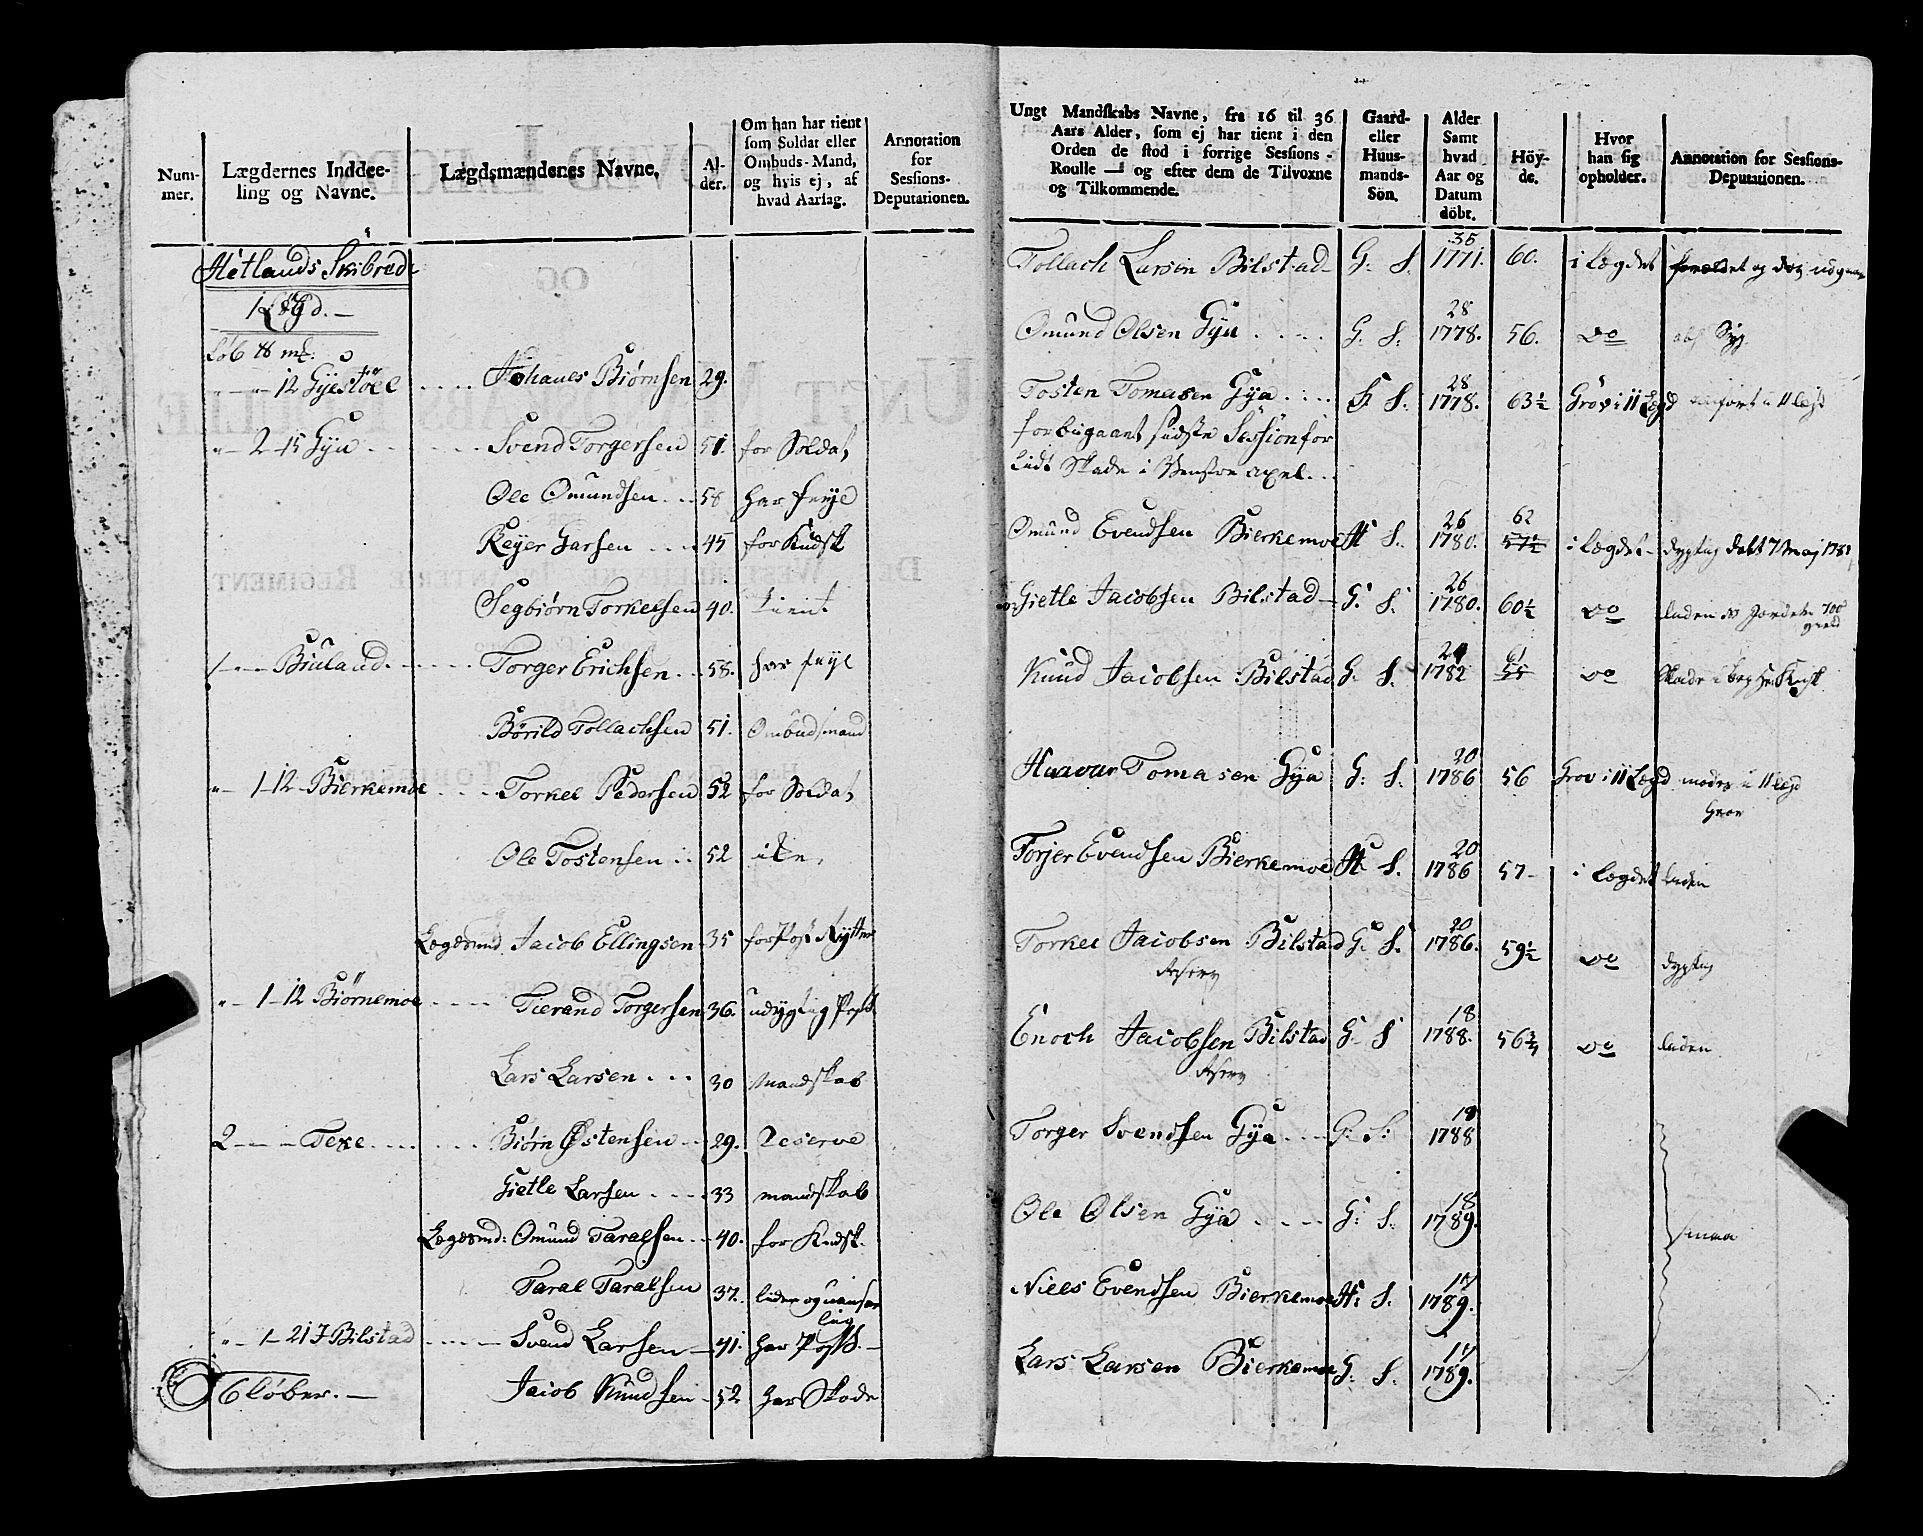 Num-
mer.
Lægdernes Inddee-
ling og Navne.
Lægdsmændenes Navne.
Al-
der.
Om han har tient
som Soldat eller
Ombuds-Mand,
og hvis ej, af
hvad Aarsag.
Annotation
for
Sessions-
Deputationen.
Hetlands Skibrede
1 Lægd.
Løb ℔ mk:
" — " — 12 Gyestøel . . . . Johanes Biørnsen 29.
" — 2 — 15 Gya . . . . . . Svend Torgersen 51. for Soldat
Ole Omundsen . . 58 har feyl
Reyer Garsen . . . . 45 for Kudsk
Segbiørn Torkelsen 40. tient
1 — " — Biuland . . . . . . Torger Erichsen . . 58. har feyl
Børild Tollachsen 51. Ombudsmand
" — 1 — 12 Bierkemoe . . . . Torkel Pedersen 52 for Soldat
Ole Tostensen . . 52 iten.
Lægdsmd Jacob Ellingsen 35 for Post Rytter
" — 1 — 12 Biørnemoe . . . . Tierand Torgersen 36. udygtig
Lars Larsen . . . 30 Mandskab
2 — " — Texe . . . . . . Biørn Østensen . . 29. Reserve
Gietle Larsen . . . . 33 mandskab
Lægdsmd: Omund Taralsen . . 40. for Kudsk.
Taral Taralsen 37. liden og uansee
lig
" — 1 — 21 Bilstad . . . . Svend Larsen — 41. har
6 Løber. — Jacob Knudsen — 52 har Skade
Ungt Mandskabs Navne, fra 16 til 36
Aars Alder, som ej har tient i den
Orden de stod i forrige Sessions-
Roulle — og efter dem de Tilvoxne
og Tilkommende.
Gaard-
eller
Huus-
mands-
Søn.
Alder
Samt
hvad
Aar og
Datum
döbt.
Höy-
de.
Hvor
han sig
opholder.
Annotation for Sessions-
Deputationen.
35
Tollach Larsen Bilstad G: S. 1771. 60. i Lægdet og
28
Omund Olsen Gya . . . . . G: S. 1778. 56. do
28
Tosten Tomasen Gya . . . . G S. 1778. 63½ Grov i 11 Lægd
forbigaaet sidste Session for
Lidt Skade i Venstre axel . . .
26 62
Omund Evendsen Bierkemoe H S. 1780. 57½ i Lægdet dygtig døbt 7 Maj
26
Gietle Jacobsen Bilstad — G: S. 1780. 60½ do liden
24 61
Knud Jacobsen Bilstad G: S. 1782 do Skade i
20
Haavar Tomasen Gya G: S. 1786 56 Grov i 11 Lægd
20
Torjer Evendsen Bierkemoe H S. 1786 57 — i Lægdet liden
20
Torkel Jacobsen Bilstad G: S. 1786. 59½ do dygtig
18
Enoch Jacobsen Bilstad G: S 1788. 56¾ do liden
18
Torger Svendsen Gya . . . G: S: 1788
18
Ole Olsen Gya . . . . G: S: 1789. smaa
17
Niels Evendsen Bierkemoe H: S. 1789.
17
Lars Larsen Bierkemoe G: S. 1789.